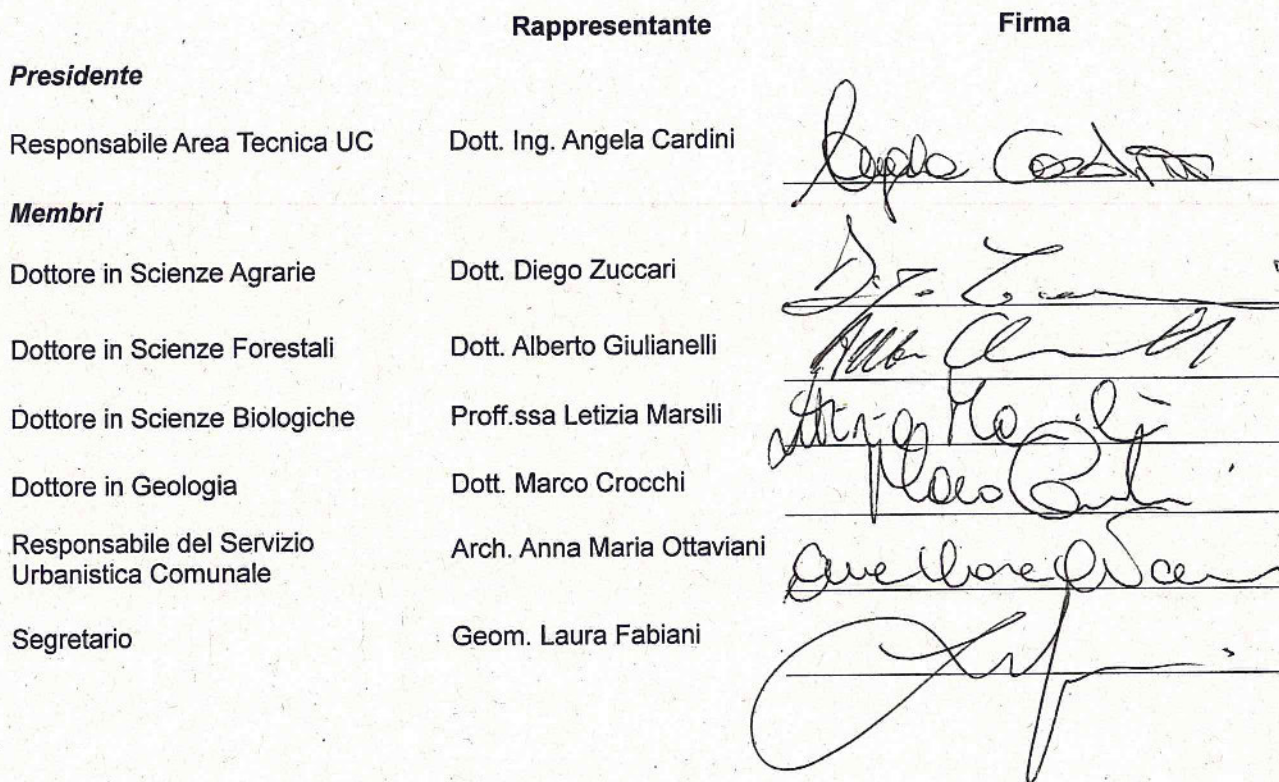 Rappresentante Firma
Presidente
Responsabile Area Tecnica UC Dott. Ing. Angela Cardini
Membri
Dottore in Scienze Agrarie Dott. Diego Zuccari
Dottore in Scienze Forestali Dott. Alberto Giulianelli
Dottore in Scienze Biologiche Proff.ssa Letizia Marsili
Dottore in Geologia Dott. Marco Crocchi
Responsabile del Servizio
Urbanistica Comunale Arch. Anna Maria Ottaviani
Segretario Geom. Laura Fabiani